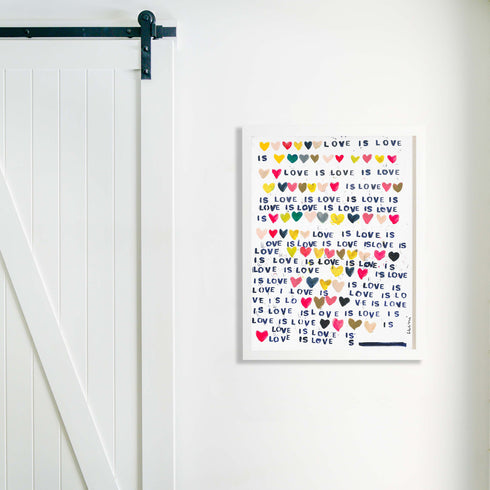 LOVE IS LOVE
IS
LOVE IS LOVE IS LOVE
IS LOVE
IS LOVE IS LOVE IS LOVE IS LOVE
LOVE IS LOVE IS LOVE IS LOVE
IS
LOVE IS LOVE IS
LOVE IS LOVE IS LOVE ISLOVE IS
LOVE IS
I.S LOVE IS LOVE IS LOVE IS
LOVE IS LOVE IS IS LOVE
IS LOVE IS LOVE IS
LOVE I LOVE IS LOVE IS LO
VE IS LO LOVE IS LOVE
IS LOVE IS LOVE IS LOVE IS
LOVE IS LOVE IS
LOVE IS LOVE IS
LOVE IS LOVE S